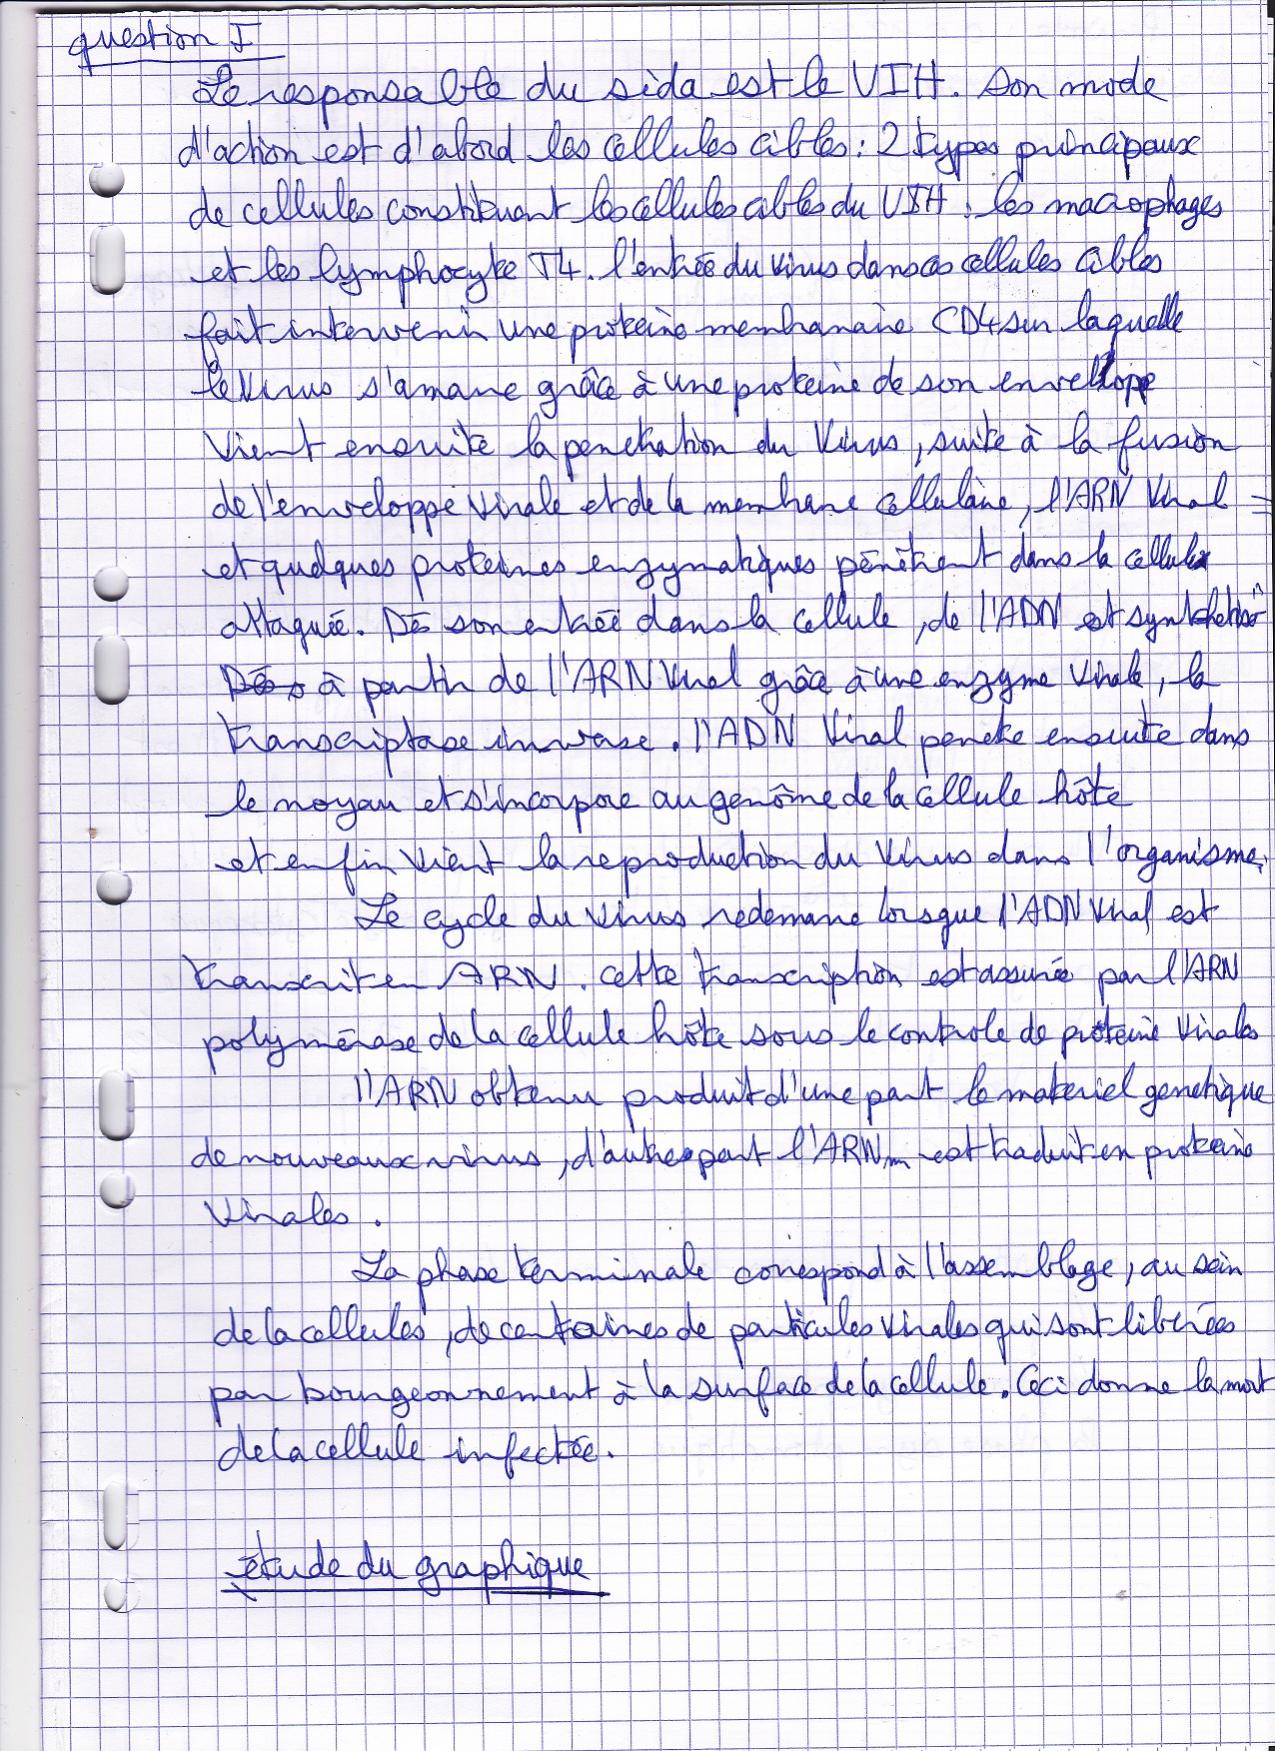 question I
Le responsable du sida est le VIH. Son mode
d'action est d'abord les cellules cibles : 2 types principaux
de cellules constituant les cellules cibles du VIH : les macrophages
et les lymphocyte T4. l'entrée du virus dans ces cellules cibles
fait intervenir une proteine membranaire CD4 sur laquelle
le virus s'amarre grâce à une proteine de son enveloppe
Vient ensuite la penetration du virus, suite à la fusion
de l'enveloppe virale et de la membrane cellulaire, l'ARN viral
et quelques proteines enzymatiques pénètrent dans la cellule
attaquée. Dès son entrée dans la cellule, de l'ADN est synthetisé
à partir de l'ARN viral grâce à une enzyme virale, la
transcriptase inverse. l'ADN viral penetre ensuite dans
le noyau et s'incorpore au genôme de la cellule hôte
et enfin vient la reproduction du virus dans l'organisme.
Le cycle du virus redemarre lorsque l'ADN viral est
transcrit en ARN. cette transcription est assurée par l'ARN
polymérase de la cellule hôte sous le controle de proteine virales
l'ARN obtenu produit d'une part le materiel genetique
de nouveaux virus, d'autre part l'ARNm est traduit en proteine
virales.
La phase terminale correspond à l'assemblage, au sein
de la cellules, de centaines de particules virales qui sont liberées
par bourgeonnement à la surface de la cellule. Ceci donne la mort
de la cellule infectée.
étude du graphique